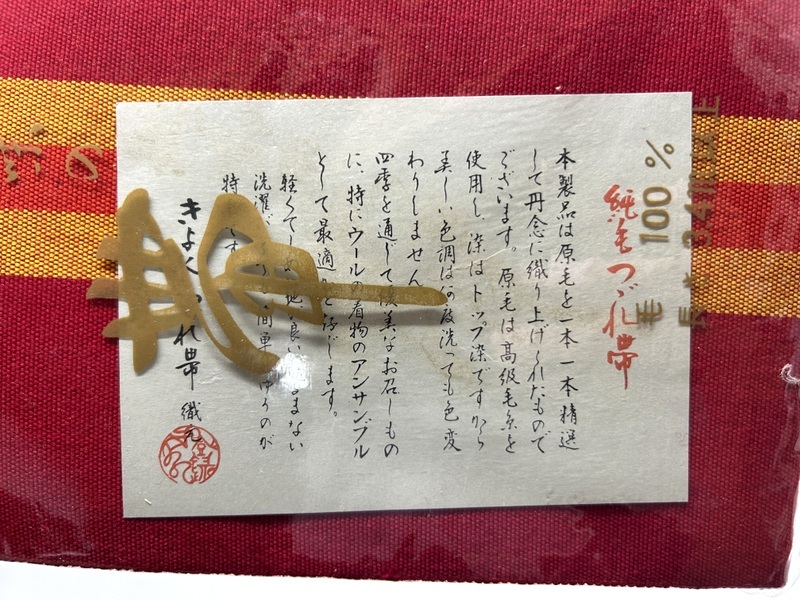 純毛つゞれ帯
本製品は原毛を一本一本精選
して丹念に織り上げられたもので
ございます。原毛は高級毛糸を
使用し、染はトップ染ですから
美しい色調は何度洗っても色変
わりしません。
四季を通じて優美なお召しもの
に、特にウールの着物のアンサンブル
として最適と存じます。
軽くてしめ心地良いしまない
洗濯が簡単にゆうのが
特です
きよくつれ帯 織元
毛 100 %
長さ 3.4m以上
の